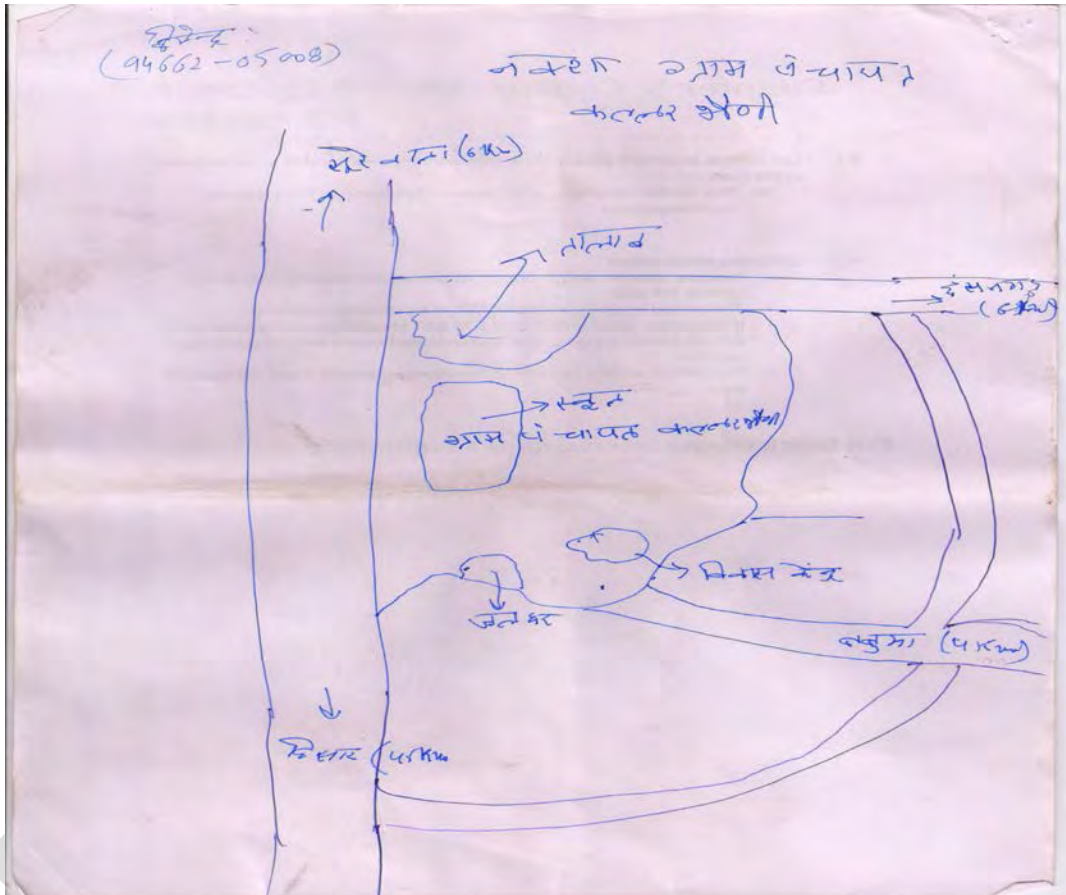 (94662-05008)
नक्शा ग्राम पंचायत
कल्लर भैणी
(6KM)
तालाब
(6KM)
स्कूल
ग्राम पंचायत कल्लर भैणी
विकास केंद्र
जल घर
(4KM)
हिसार (45KM